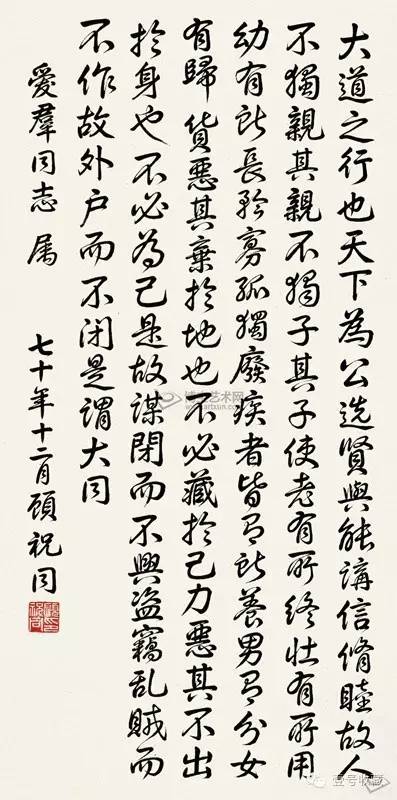 大道之行也天下為公选賢與能講信脩睦故人
不獨親其親不獨子其子使老有所終壯有所用
幼有所長矜寡孤獨廢疾者皆有所養男有分女
有歸貨惡其棄於地也不必藏於己力惡其不出
於身也不必為己是故謀閉而不興盗竊乱賊而
不作故外户而不闭是謂大同
愛羣同志属
七十年十二月顾祝同
壹号收藏